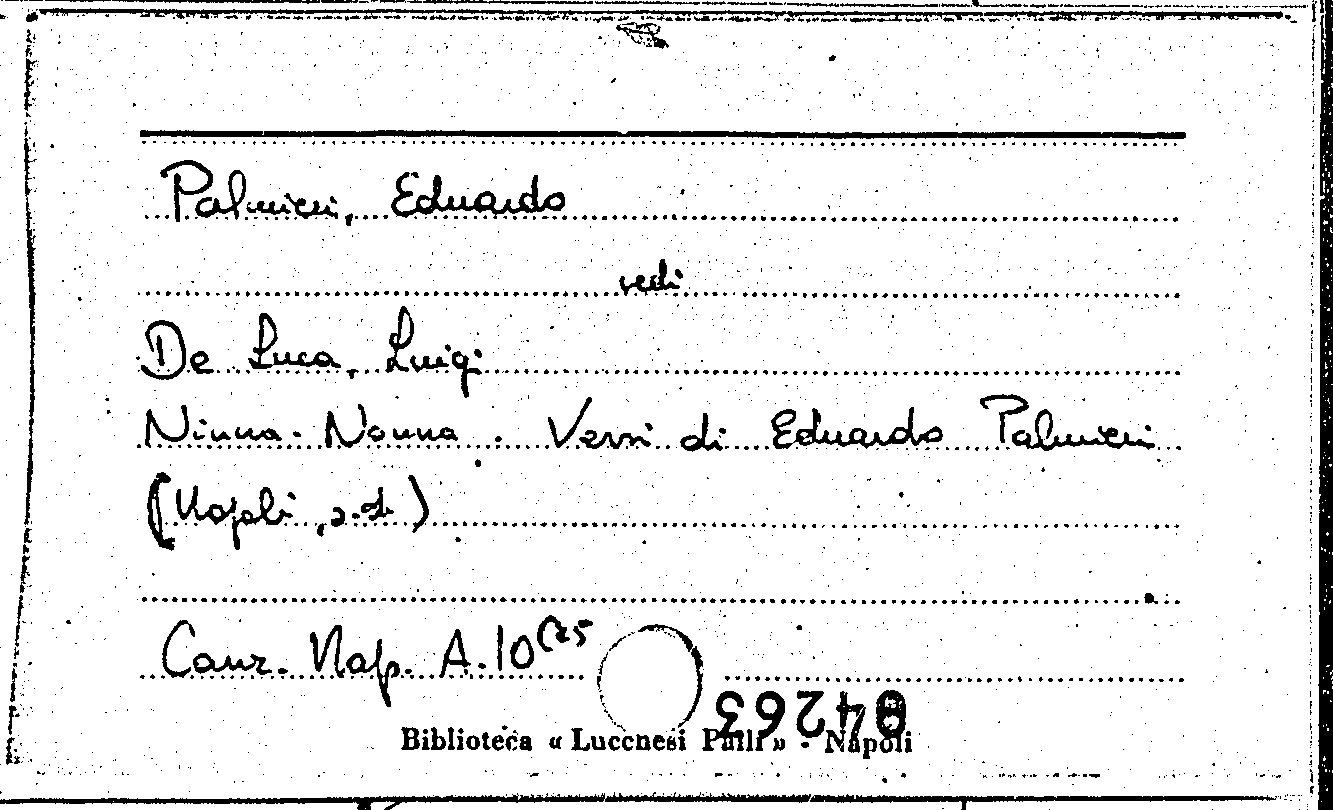 Palmieri, Eduardo
vedi
De Luca, Luigi
Ninna-Nanna. Versi di Eduardo Palmieri
(Napoli, s.d.)
Canz. Nap. A.10(25
04263
Biblioteca « Lucchesi Palli » - Napoli